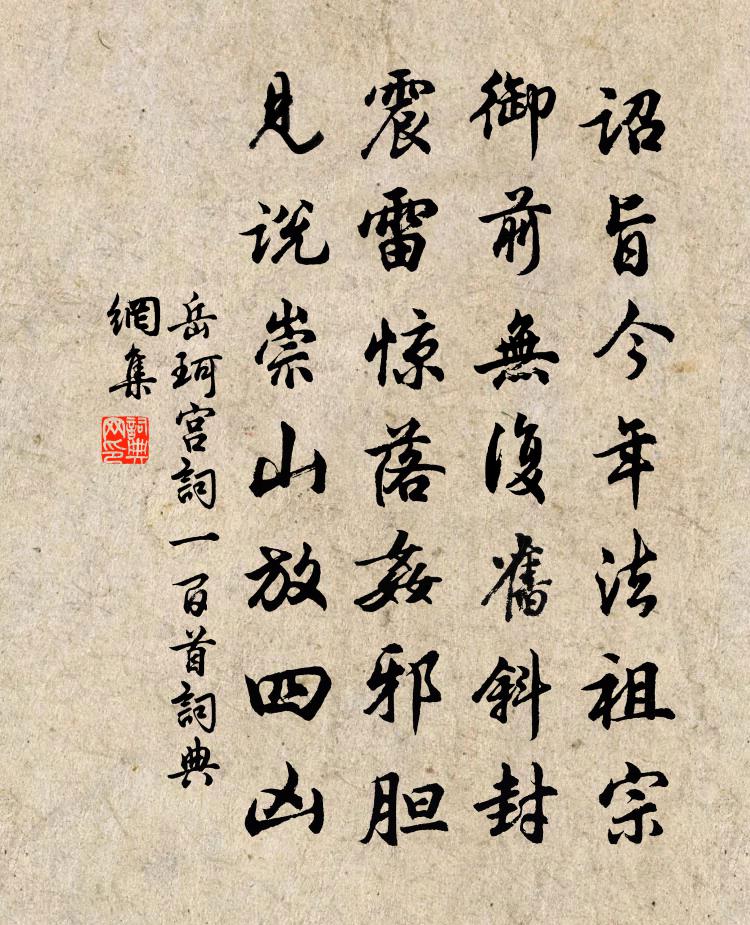 詔旨今年法祖宗
御前無復舊斜封
震雷惊落姦邪胆
見説崇山放四凶
岳珂宫詞一百首詞典
網集
詞典
网印